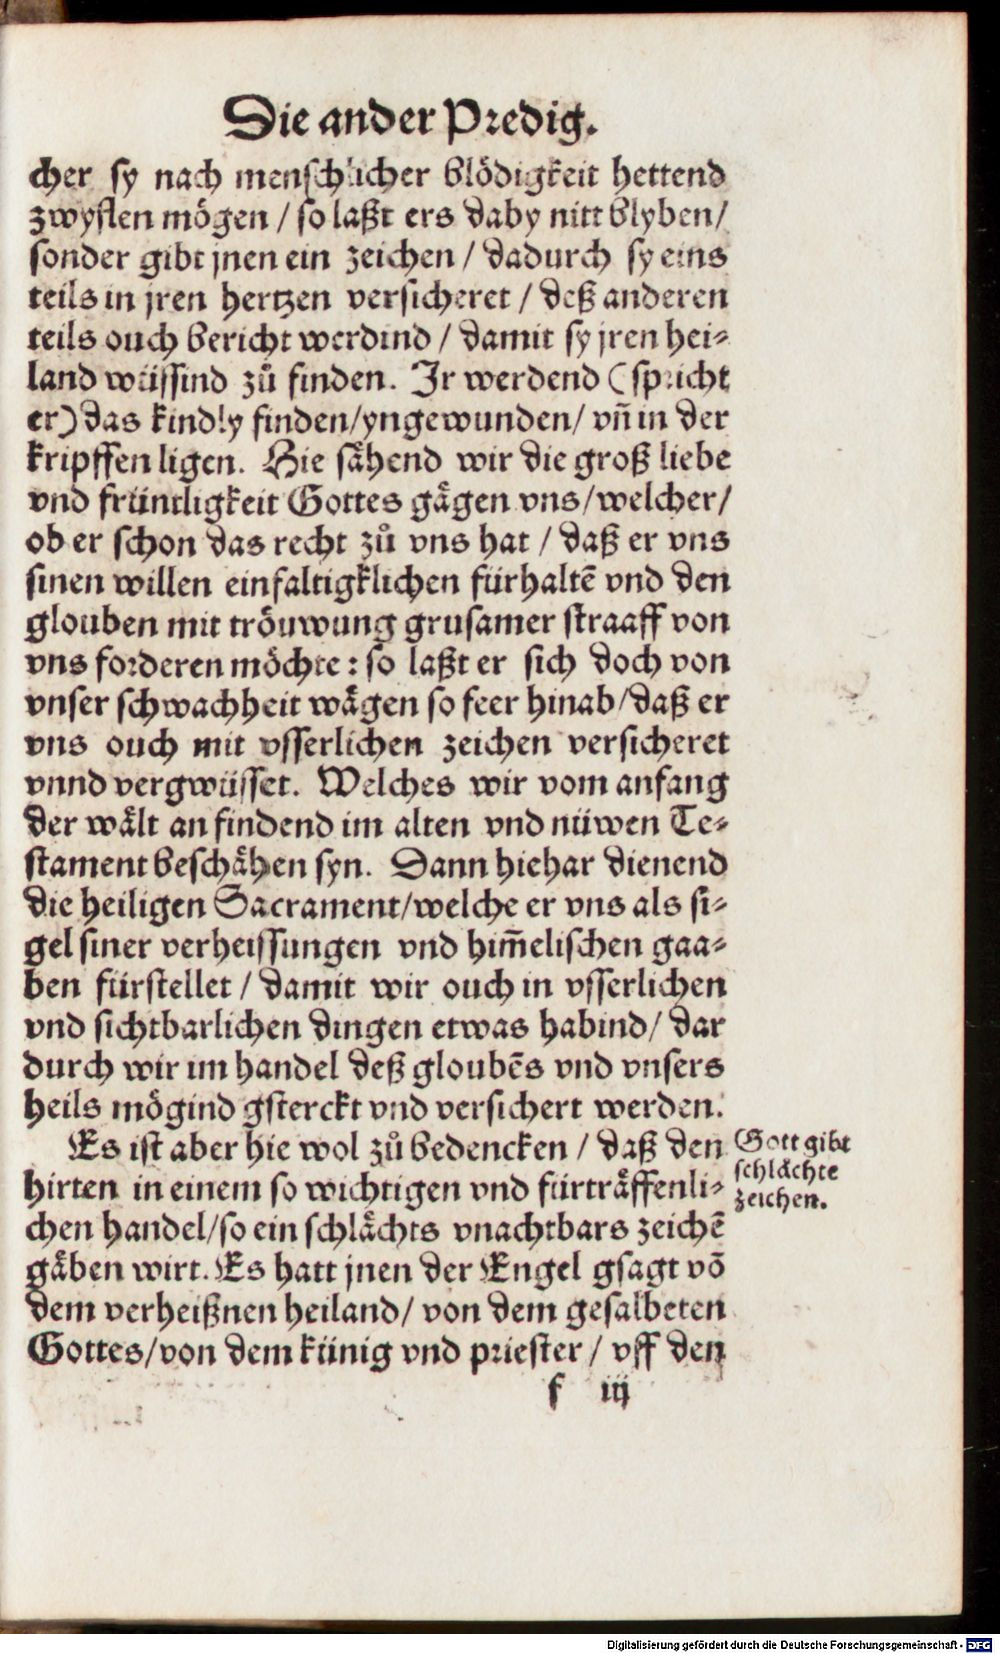 Die ander Predig.
cher sy nach menschlicher blödigkeit hettend
zwyflen mögen / so laßt ers daby nitt blyben /
sonder gibt jnen ein zeichen / dadurch sy eins
teils in jren hertzen versicheret / deß anderen
teils ouch bericht werdind / damit sy jren hei⸗
land wüssind zů finden. Ir werdend (spricht
er) das kindly finden / yngewunden / vn̄ in der
kripffen ligen. Hie sähend wir die groß liebe
vnd früntligkeit Gottes gägen vns / welcher /
ob er schon das recht zů vns hat / daß er vns
sinen willen einfaltigklichen fürhaltē vnd den
glouben mit tröuwung grusamer straaff von
vns forderen möchte: so laßt er sich doch von
vnser schwachheit wägen so feer hinab / daß er
vns ouch mit vsserlichen zeichen versicheret
vnnd vergwüsset. Welches wir vom anfang
der wält an findend im alten vnd nüwen Te⸗
stament beschähen syn. Dann hiehar dienend
die heiligen Sacrament / welche er vns als si⸗
gel siner verheissungen vnd him̄elischen gaa⸗
ben fürstellet / damit wir ouch in vsserlichen
vnd sichtbarlichen dingen etwas habind / dar
durch wir im handel deß gloubēs vnd vnsers
heils mögind gsterckt vnd versichert werden.
Es ist aber hie wol zů bedencken / daß den
hirten in einem so wichtigen vnd fürträffenli⸗
chen handel / so ein schlächts vnachtbars zeichē
gäben wirt. Es hatt jnen der Engel gsagt vō
dem verheißnen heiland / von dem gesalbeten
Gottes / von dem künig vnd priester / vff den
f iij
Gott gibt
schlächte
zeichen.
Digitalisierung gefördert durch die Deutsche Forschungsgemeinschaft - DFG